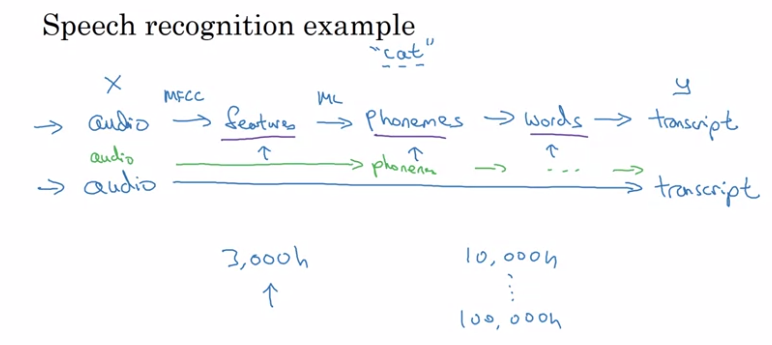 Speech recognition example
"cat"
X MFCC ML y
→ audio → features → phonemes → words → transcript
audio → phonemes → ... →
→ audio → transcript
3,000h 10,000h
100,000h